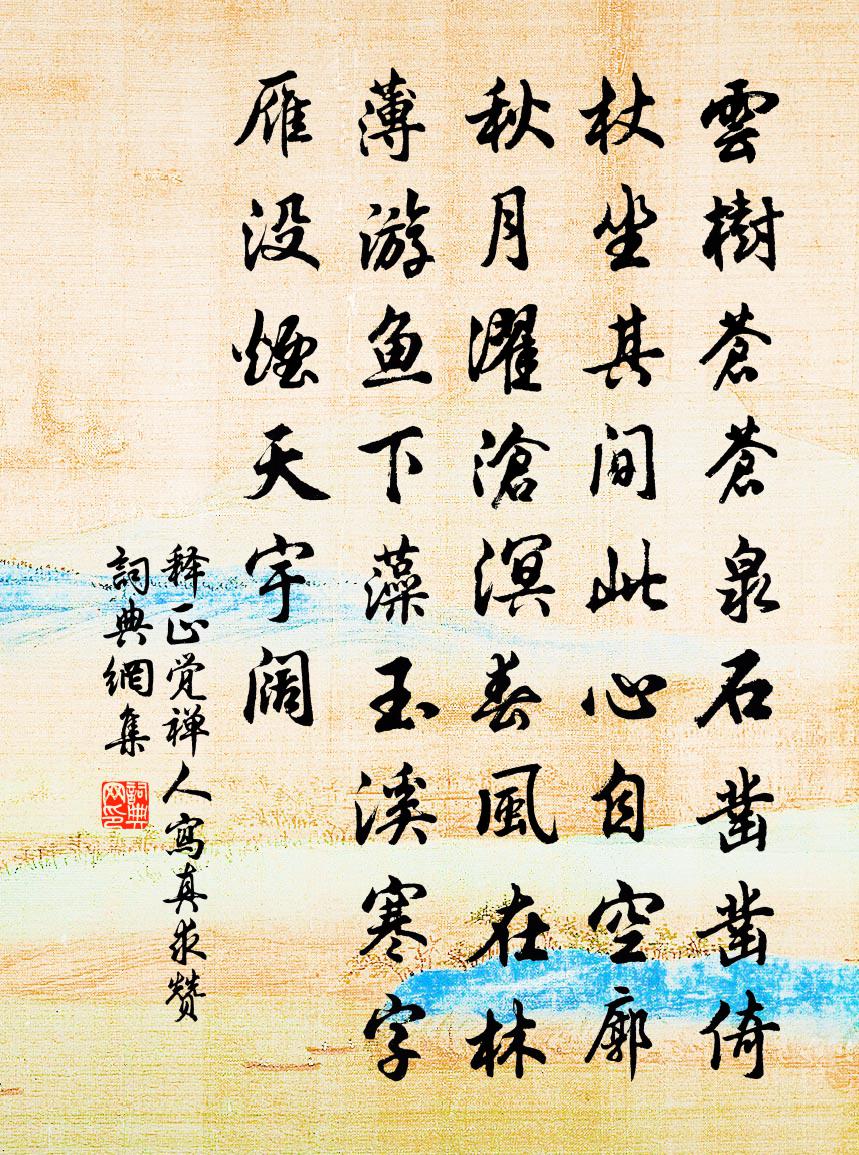 雲樹蒼蒼泉石凿凿倚
杖坐其间此心自空廓
秋月濯滄溟春風在林
薄游鱼下藻玉溪寒字
雁没煙天宇阔
释正觉禅人寫真求赞
詞典網集
詞典网印